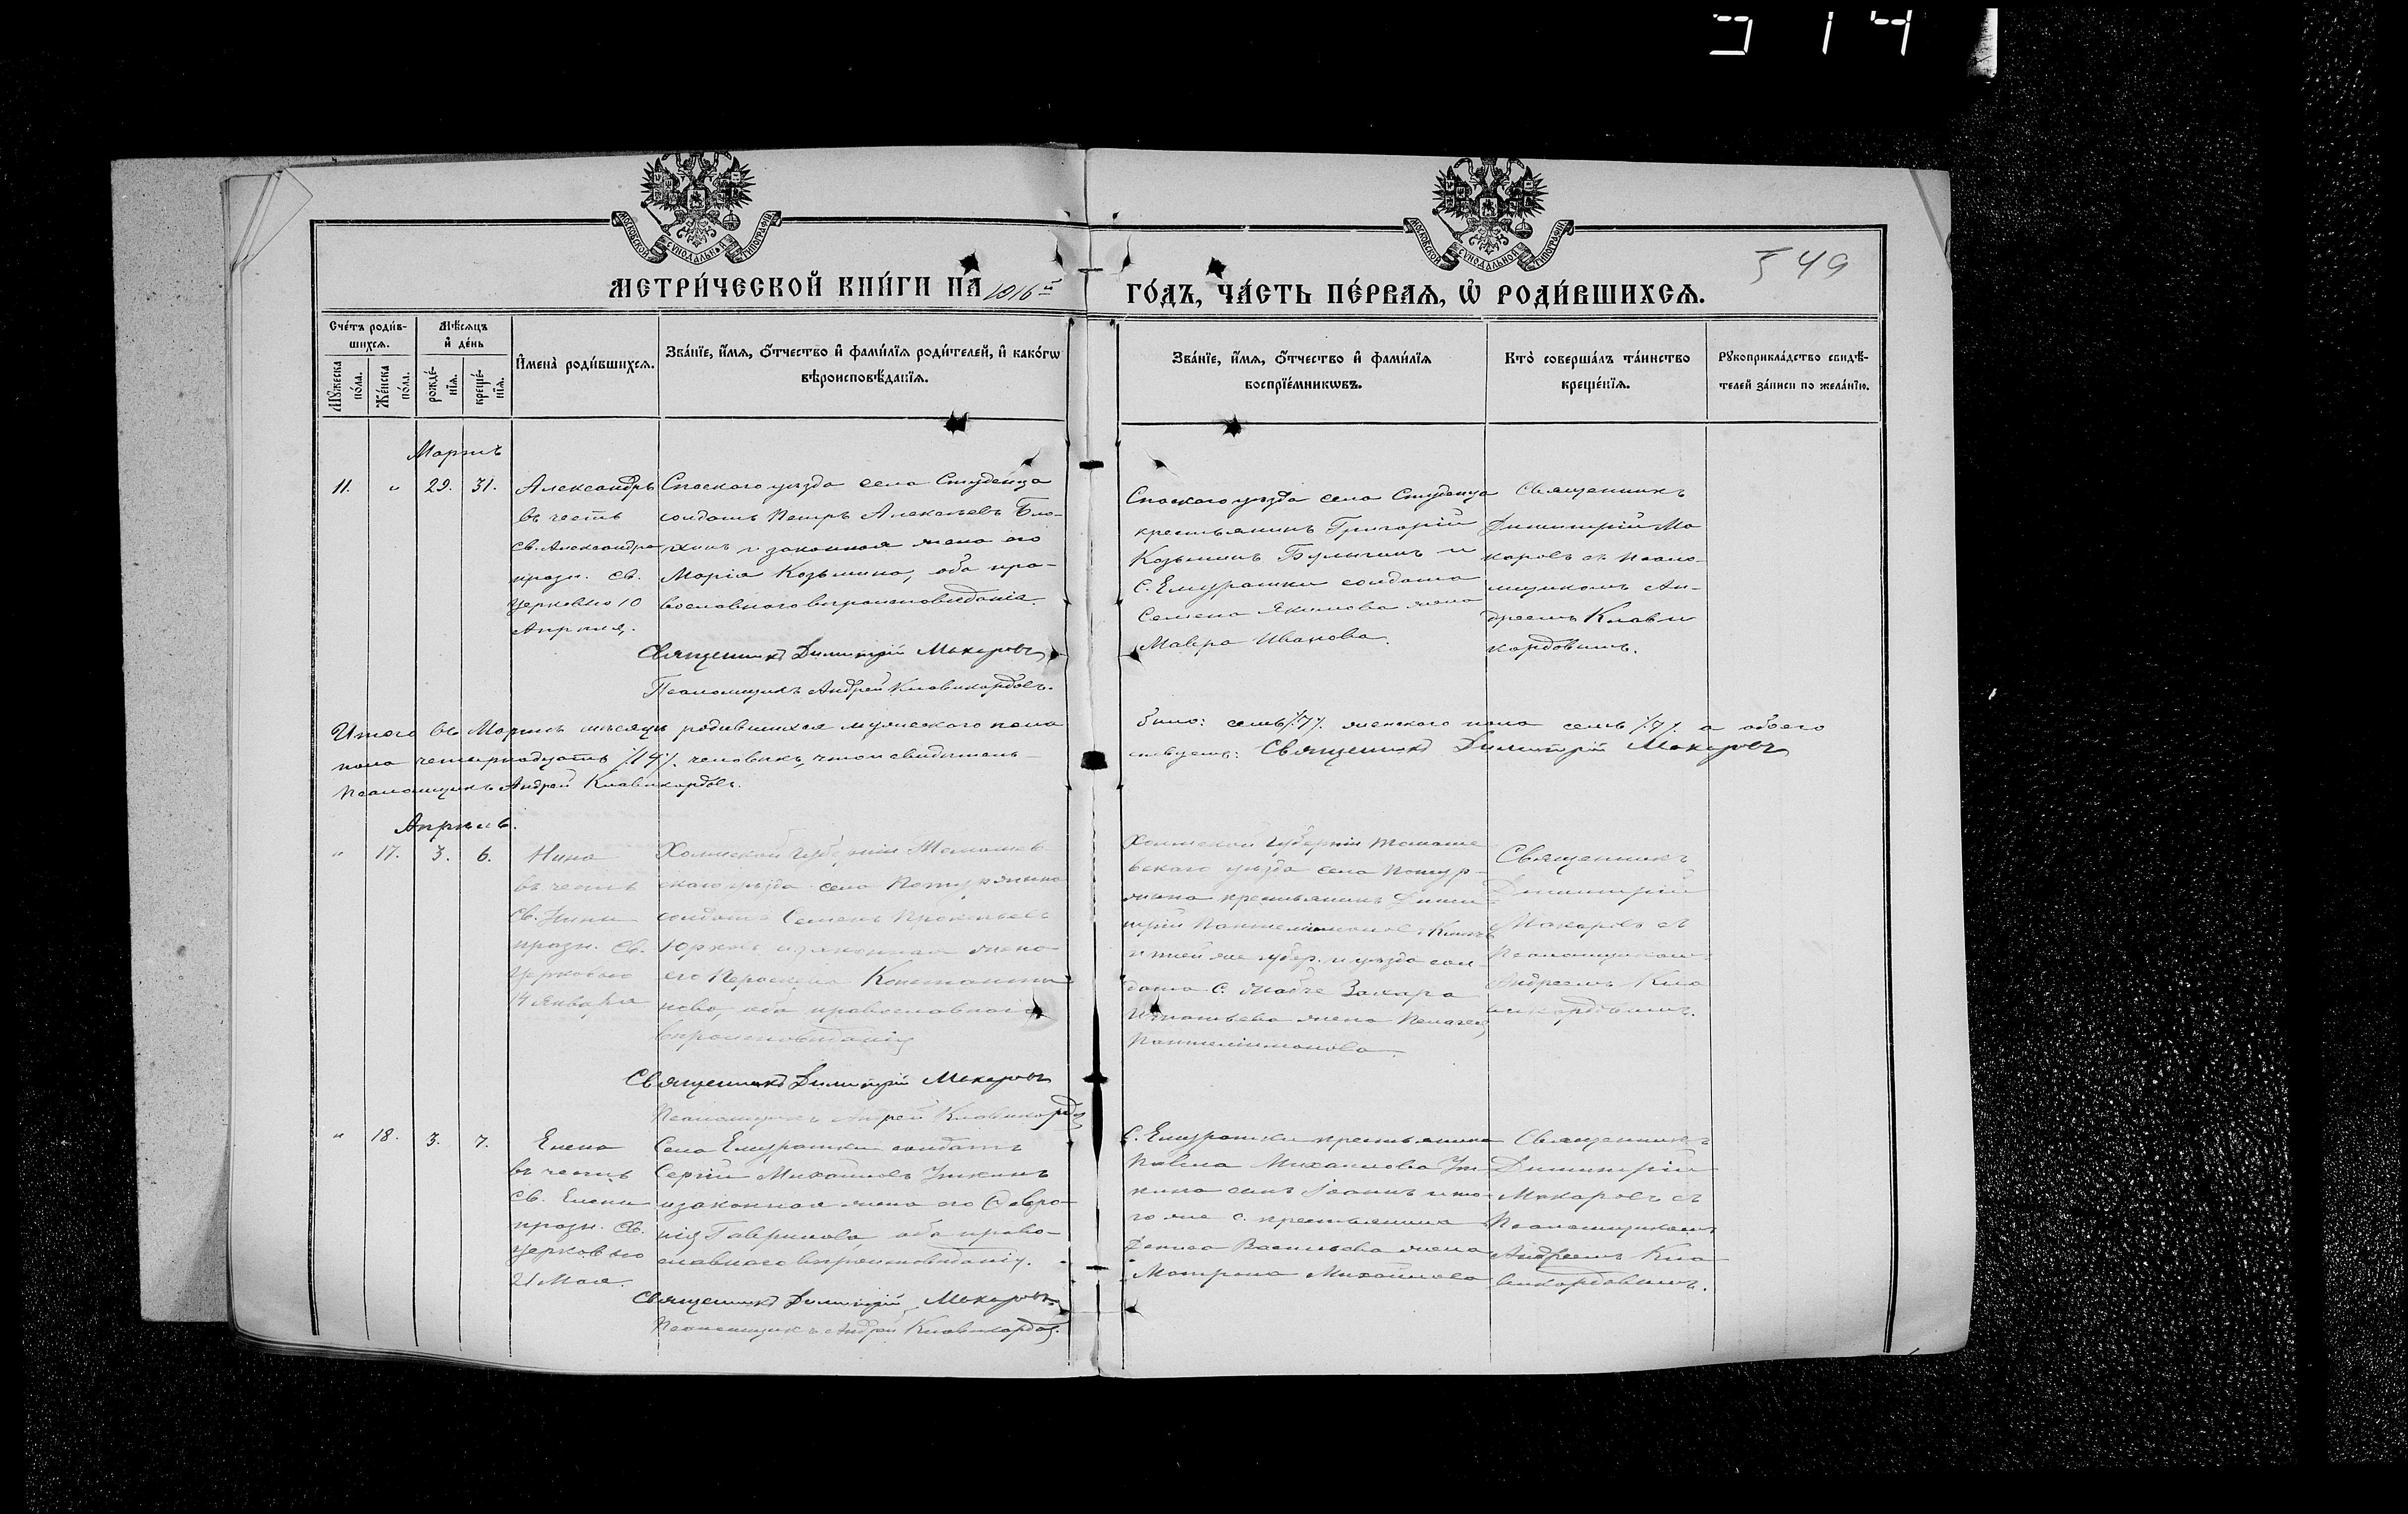 314
МОСКОВСКОЙ СУНОДАЛЬНОЙ ТИПОГРАФІИ
МОСКОВСКОЙ СУНОДАЛЬНОЙ ТИПОГРАФІИ
549
МЕТРИ́ЧЕСКОЙ КНИ́ГИ НА 1916й
ГО́ДЪ, ЧА́СТЬ ПЕ́РВАЯ, Ѡ҆ РОДИ́ВШИХСѦ.
Сче́тъ роди́в-
шихсѧ.
Мѣ́сѧцъ
и҆ де́нь
Мꙋ́жеска по́ла.
Же́нска по́ла.
рожде́-нїѧ.
креще́-нїѧ.
И҆мена̀ роди́вшихсѧ.
Зва́нїе, и҆́мѧ, ѻ҆́тчество и҆ фами́лїѧ роди́телей, и҆ како́гѡ
вѣроисповѣ́данїѧ.
Зва́нїе, и҆́мѧ, ѻ҆́тчество и҆ фами́лїѧ
воспрїе́мникѡвъ.
Кто̀ соверша́лъ та́инство
креще́нїѧ.
Рꙋкоприкла́дство свидѣ́-
телей за́писи по жела́нїю.
Мартъ
11. " 29. 31.
Александръ
въ честь
св. Александра
празн. св.
Церковью 10
Апрѣля.
Спаского уѣзда села Студенца
солдатъ Петръ Алексѣевъ Бло-
хинъ и законная жена его
Марія Козьмина, оба пра-
вославнаго вѣроисповѣданія.
Священникъ Димитрій Макаровъ
Псаломщикъ Андрей Клавикордовъ.
Спаского уѣзда села Студенца
крестьянинъ Григорій
Козьминъ Булыгинъ и
с. Емурашки солдата
Семена Якимова жена
Мавра Иванова.
Священникъ
Димитрій Ма-
каровъ съ псало-
мщикомъ Ан-
дреемъ Клави
кордовымъ.
Итого въ Мартѣ мѣсяцѣ родившихся мужескаго пола
было: семь /.7/. женскаго пола семь /.7/. а обоего
пола четырнадцать /.14/. человѣкъ, въ томъ свидѣтель-
ствуемъ: Священникъ Димитрій Макаровъ
Псаломщикъ Андрей Клавикордовъ.
Апрѣль.
" 17. 3. 6.
Нина
въ честь
св. Нины
празн. св.
Церковью
14 Января
Холмской губерніи Томашев-
скаго уѣзда села
солдатъ Семенъ Прокопьевъ
Юрковъ и законная жена
его Параскева Константи
нова, оба православнаго
вѣроисповѣданія
Священникъ Димитрій Макаровъ
Псаломщикъ Андрей Клавикордовъ
Холмской губерніи Томаше
вскаго уѣзда села
крестьянинъ Дими
трій Пантелеимоновъ
и той же губер. и уѣзда сол-
дата с. Захара
Игнатьева жена Пелагея
Пантелеимонова.
Священникъ
Димитрій
Макаровъ съ
Псаломщикомъ
Андреемъ Кла
викордовымъ.
" 18. 3. 7.
Елена
въ честь
св. Елены
празн. св.
Церковью
21 Мая.
Села Емурашки солдатъ
Сергій Михайловъ Уткинъ
и законная жена его Февро-
нія Гаврилова, оба право-
славнаго вѣроисповѣданія.
Священникъ Димитрій Макаровъ.
Псаломщикъ Андрей Клавикордовъ.
С. Емурашки крестьянина
Павла Михайлова Ут
кина сынъ Іоаннъ и то-
го же с. крестьянина
Дениса Васильева жена
Матрона Михайлова
Священникъ
Димитрій
Макаровъ съ
Псаломщикомъ
Андреемъ Кла
викордовымъ.